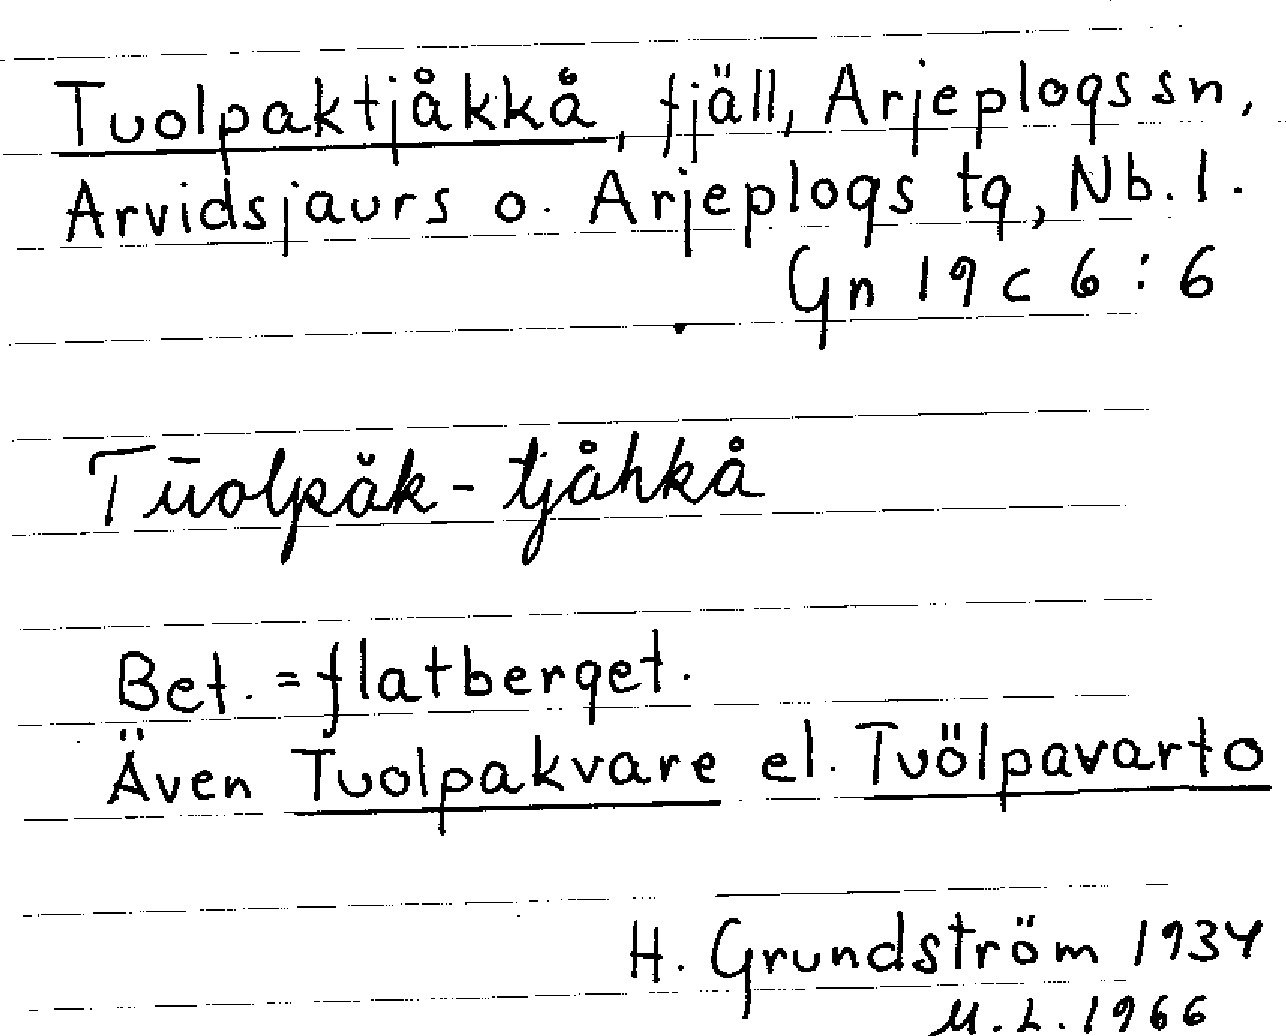 Tuolpaktjåkkå, fjäll, Arjeplogs sn,
Arvidsjaurs o. Arjeplogs tg, Nb. l.
Gn 19 c 6 : 6
Tūolpăk - tjåhkå
Bet. = flatberget.
Även Tuolpakvare el. Tuölpavarto
H. Grundström 1934
M. L. 1966